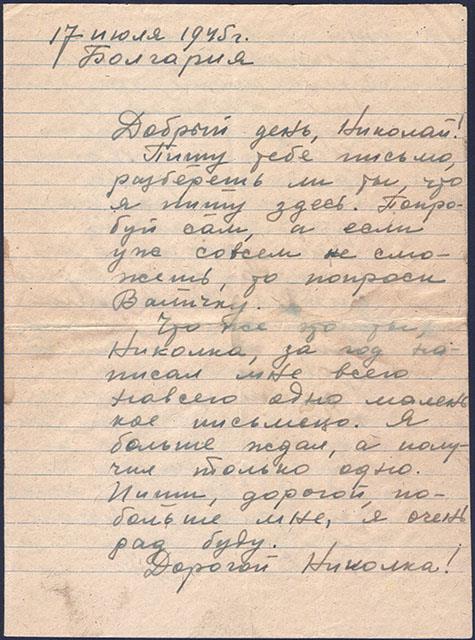 17 июля 1945г.
Болгария
Добрый день, Николай!
Пишу тебе письмо,
разберешь ли ты, что
я пишу здесь. Попро-
буй сам, а если
уж совсем не смо-
жешь, то попроси
Валичку.
Что же это ты,
Николка, за год на-
писал мне всего
навсего одно малень
кое письмецо. Я
больше ждал, а полу-
чил только одно.
Пиши, дорогой, по-
больше мне, я очень
рад буду.
Дорогой Николка!